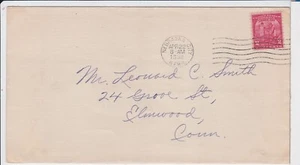 Mr. Leonard C. Smith
24 Grove St,
Elmwood,
Conn.